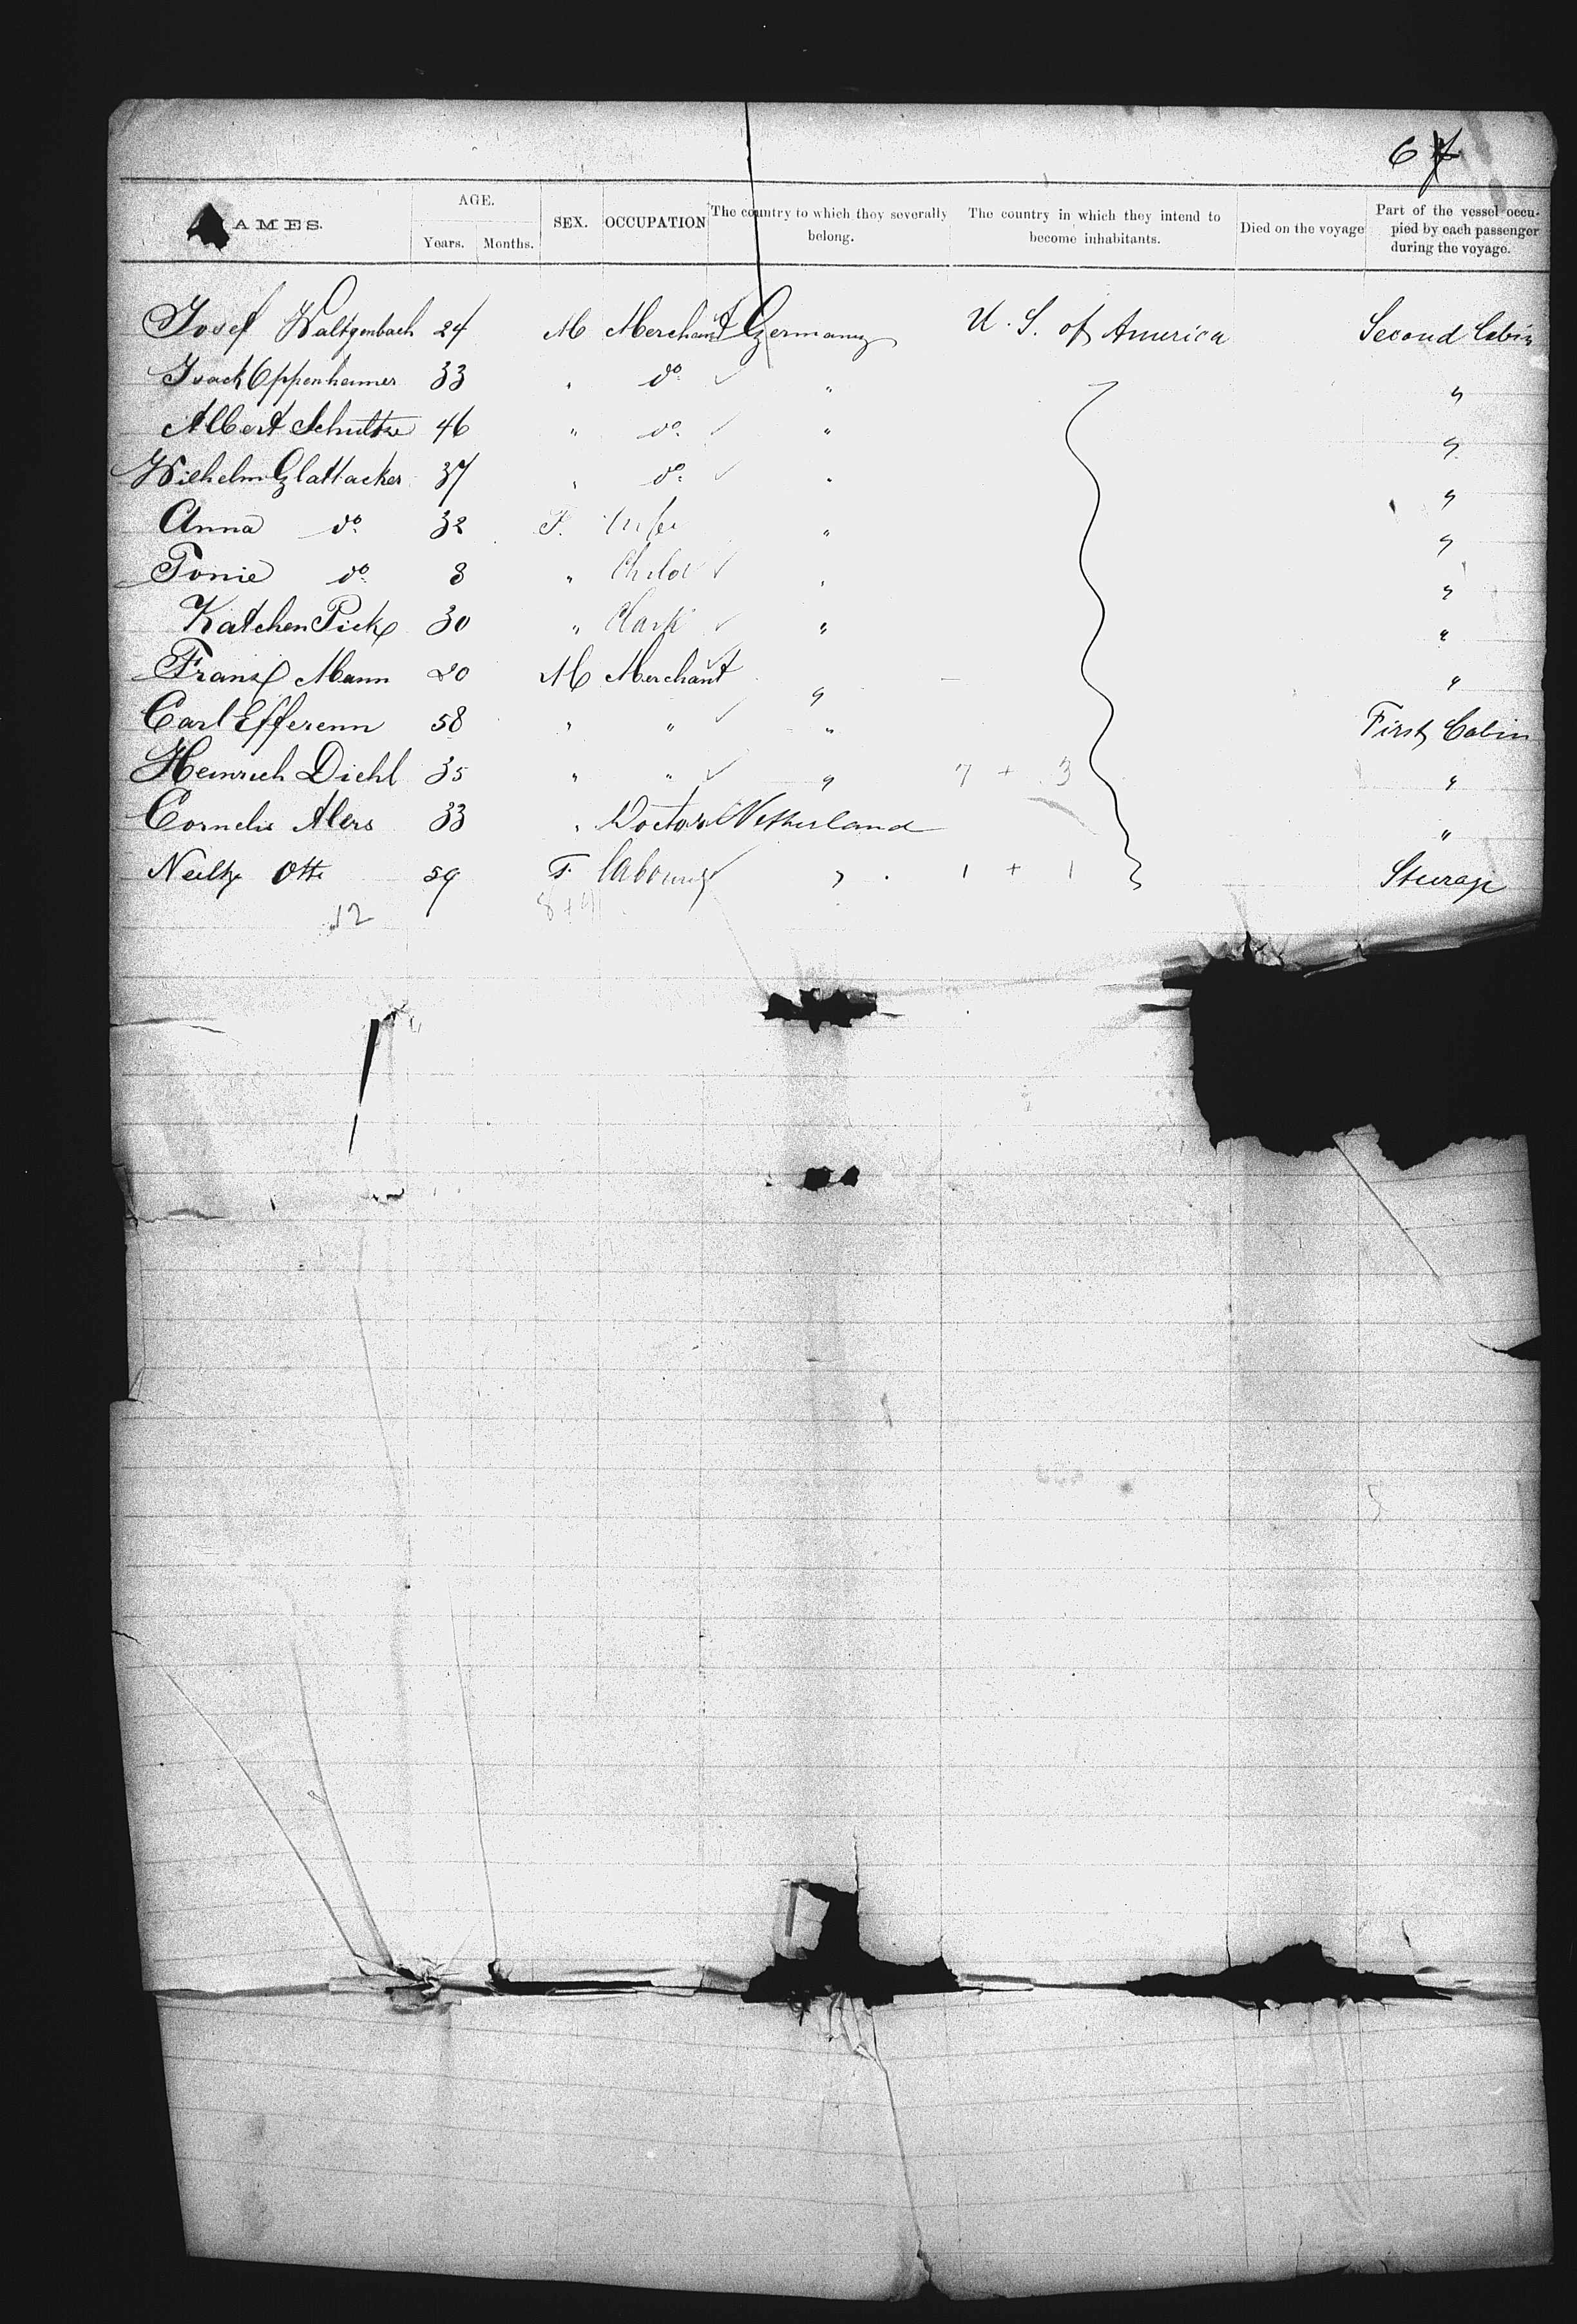 67
AMES. AGE. Years. Months. SEX. OCCUPATION The country to which they severally belong. The country in which they intend to become inhabitants. Died on the voyage Part of the vessel occupied by each passenger during the voyage.
Josef Waltzenbach 24 M Merchant Germany U. S. of America Second Cabin
Isack Oppenheimer 33 " do " "
Albert Schultze 46 " do " "
Wilhelm Glattacker 37 " do " "
Anna do 32 F. Wife " "
Tonie do 8 " Child " "
Katchen Pick 30 " " "
Franz Mann 20 M Merchant " "
Carl Efferenn 58 " " " First Cabin
Heinrich Diehl 35 " " " 7 + 3 "
Cornelis Alers 33 " Doctor Netherland "
Otte 59 F. " 1 + 1 Sturage
12 8+4